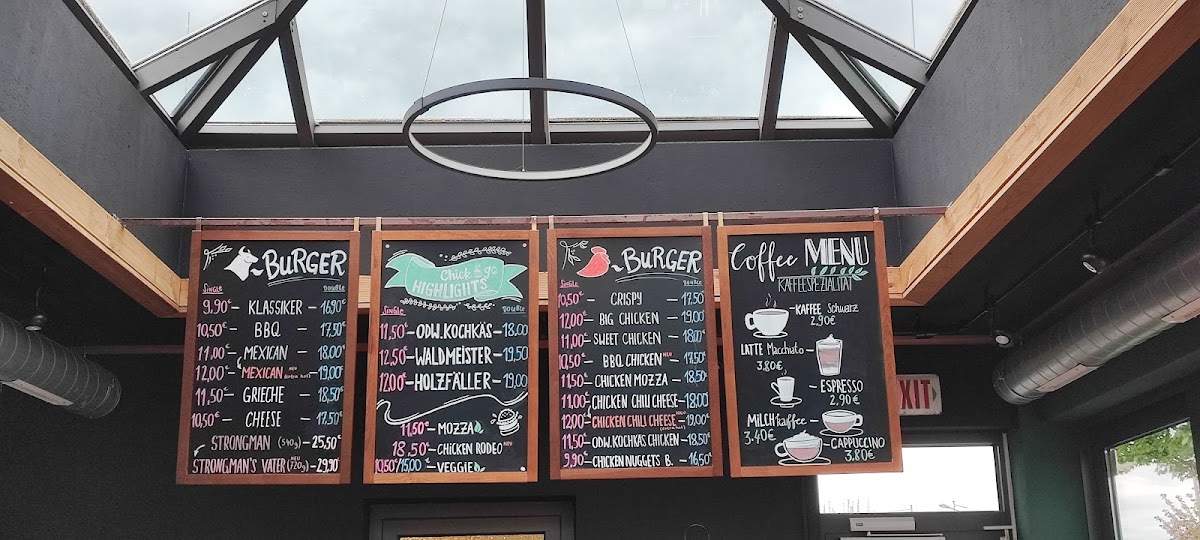 BURGER
Single Double
9,90€ - KLASSIKER - 16,90€
10,50€ - BBQ - 17,50€
11,00€ - MEXICAN - 18,00€
12,00€ - MEXICAN NEU - 19,00€
11,50€ - GRIECHE - 18,50€
10,50€ - CHEESE - 17,50€
STRONGMAN (540g) - 25,50€
STRONGMAN'S VATER NEU (720g) - 29,90€
Chick & go
HIGHLIGHTS
Single Double
11,50€ - ODW. KOCHKÄS - 18,00
12,50€ - WALDMEISTER - 19,50
12,00€ - HOLZFÄLLER - 19,00
11,50€ - MOZZA
18,50€ - CHICKEN RODEO NEU
10,50/15,00€ - VEGGIE
BURGER
Single Double
10,50€ - CRISPY - 17,50€
12,00€ - BIG CHICKEN - 19,00€
11,00€ - SWEET CHICKEN - 18,00€
10,50€ - BBQ CHICKEN NEU - 17,50€
11,50€ - CHICKEN MOZZA - 18,50€
11,00€ - CHICKEN CHILI CHEESE - 18,00
12,00€ - CHICKEN CHILI CHEESE - 19,00€
11,50€ - ODW. KOCHKÄS CHICKEN - 18,50€
9,90€ - CHICKEN NUGGETS B. - 16,50€
Coffee MENU
KAFFEESPEZIALITÄT
- KAFFEE Schwarz
2,90€
LATTE Macchiato -
3,80€
- ESPRESSO
2,90€
MILCHkaffee -
3,40€
- CAPPUCCINO
3,80€
EXIT